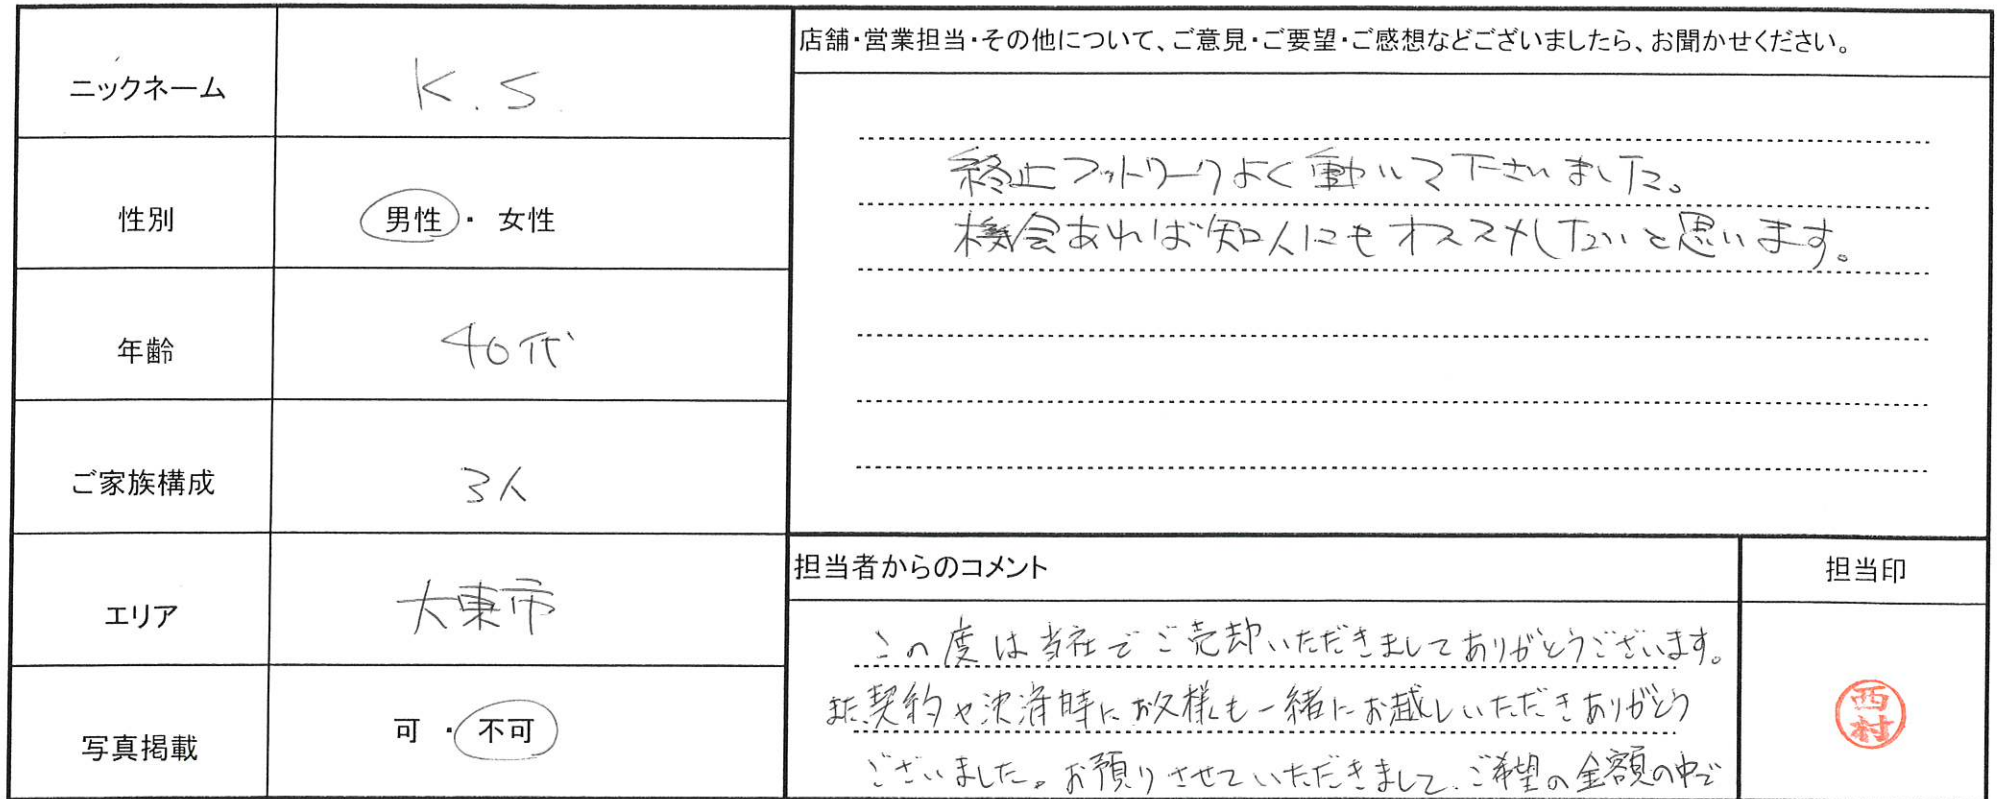 ニックネーム
K.S.
性別
男性・女性
年齢
40代
ご家族構成
3人
エリア
大東市
写真掲載
可・不可
店舗・営業担当・その他について、ご意見・ご要望・ご感想などございましたら、お聞かせください。
終止フットワークよく動いて下さいました。
機会あれば知人にもオススメしたいと思います。
担当者からのコメント
この度は当社でご売却いただきましてありがとうございます。
また契約や決済時にお父様も一緒にお越しいただきありがとう
ございました。お預りさせていただきまして、ご希望の金額の中で
担当印
西村